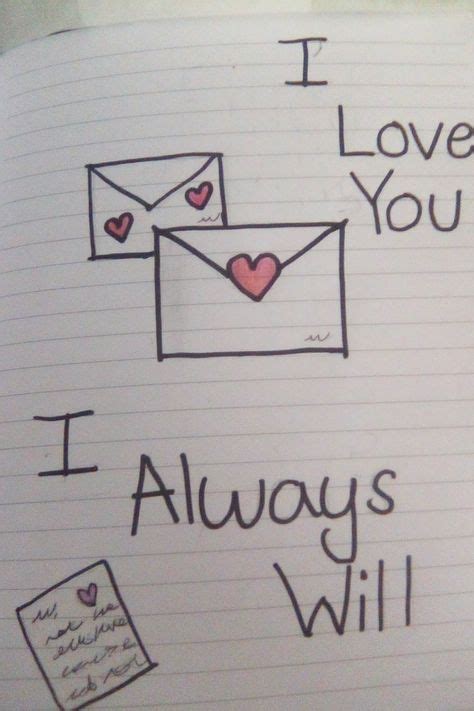 I
Love
You
I
Always
Will